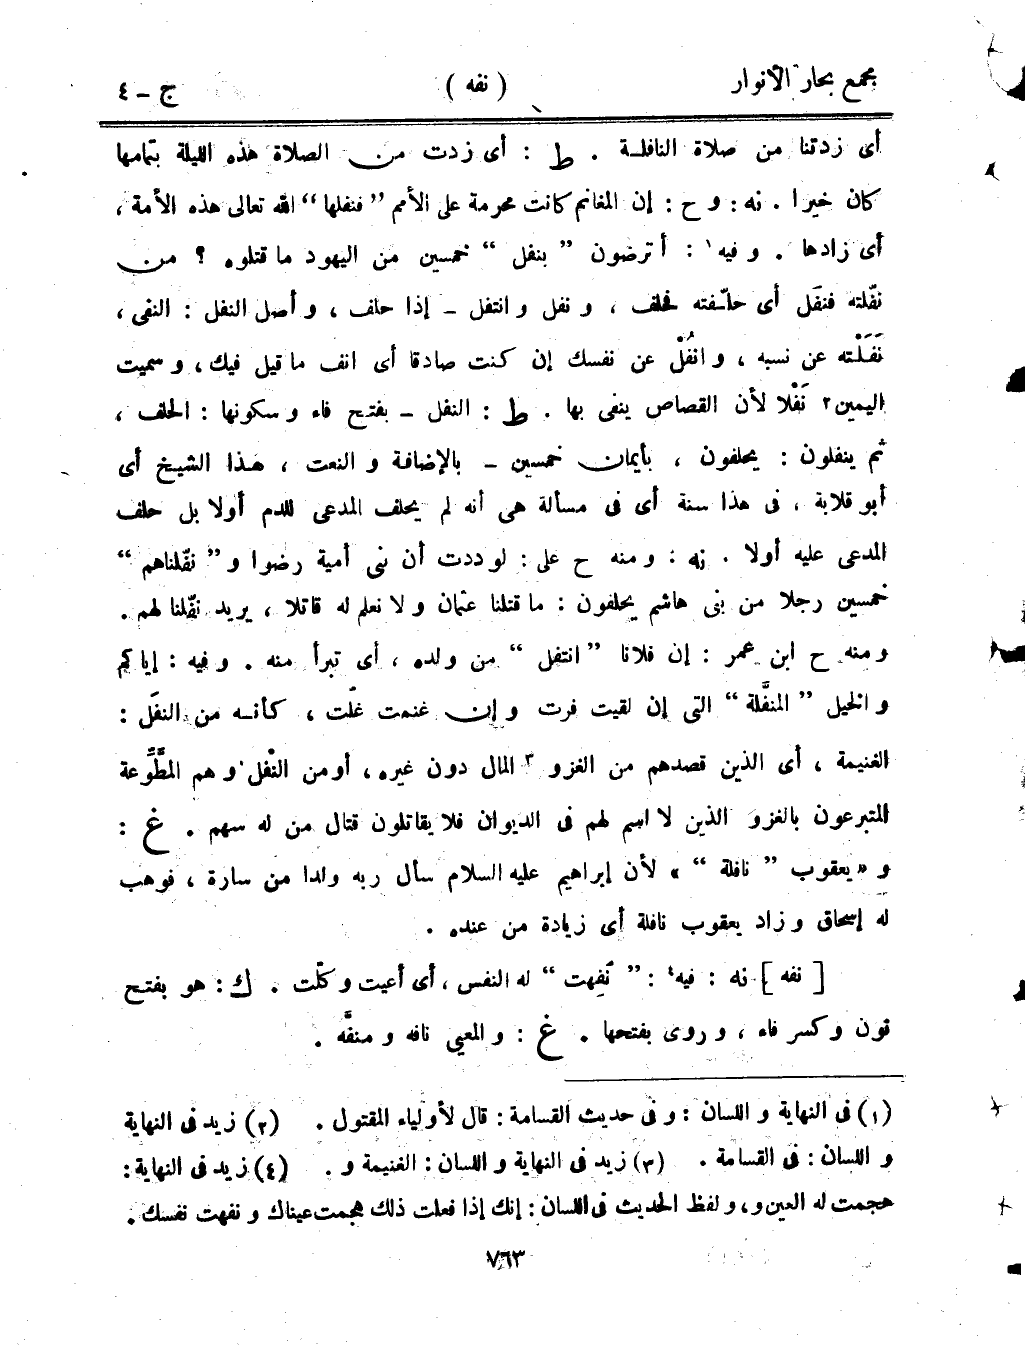 مجمع بحار الأنوار ( نفه ) ج - ٤
أى زدتنا من صلاة النافلة . ط : أى زدت من الصلاة هذه الليلة بتمامها
كان خيرا . نه : و ح : إن المغانم كانت محرمة على الأمم ”فنفلها“ الله تعالى هذه الأمة ،
أى زادها . و فيه ١ : أ ترضون ” بنفل “ خمسين من اليهود ما قتلوه ؟ من
نفّلته فنفَل أى حلّفته فحلف ، و نفل و انتفل - إذا حلف ، و أصل النفل : النفى ،
نَفَلْته عن نسبه ، و انفُلْ عن نفسك إن كنت صادقا أى انف ما قيل فيك ، و سميت
اليمين ٢ نَفْلا لأن القصاص ينفى بها . ط : النفل - بفتح فاء و سكونها : الحلف ،
ثم ينفلون : يحلفون ، بأيمان خمسين - بالإضافة و النعت ، هذا الشيخ أى
أبو قلابة ، فى هذا سنة أى فى مسألة هى أنه لم يحلف المدعى للدم أولا بل حلف
المدعى عليه أولا . نه : و منه ح على : لوددت أن بنى أمية رضوا و ” نفّلناهم “
خمسين رجلا من بنى هاشم يحلفون : ما قتلنا عثمان و لا نعلم له قاتلا ، يريد نفّلنا لهم .
و منه ح ابن عمر : إن فلانا ” انتفل “ من ولده ، أى تبرأ منه . و فيه : إياكم
و الخيل ” المنفَّلة “ التى إن لقيت فرت و إن غنمت غلّت ، كأنه من النفَل :
الغنيمة ، أى الذين قصدهم من الغزو ٣ المال دون غيره ، أو من النفْل و هم المطَّوِّعة
المتبرعون بالغزو الذين لا اسم لهم فى الديوان فلا يقاتلون قتال من له سهم . غ :
و « يعقوب ” نافلة “ » لأن إبراهيم عليه السلام سأل ربه ولدا من سارة ، فوهب
له إسحاق و زاد يعقوب نافلة أى زيادة من عنده .
[ نفه ] نه : فيه ٤ : ” نَفِهت “ له النفس ، أى أعيت و كلّت . ك : هو بفتح
نون و كسر فاء ، و روى بفتحها . غ : و المعيى نافه و منفَّه .
(١) فى النهاية و اللسان : و فى حديث القسامة : قال لأولياء المقتول . (٢) زيد فى النهاية
و اللسان : فى القسامة . (٣) زيد فى النهاية و اللسان : الغنيمة و . (٤) زيد فى النهاية :
هجمت له العين و ، و لفظ الحديث فى اللسان : إنك إذا فعلت ذلك هجمت عيناك و نفهت نفسك .
٧٦٣